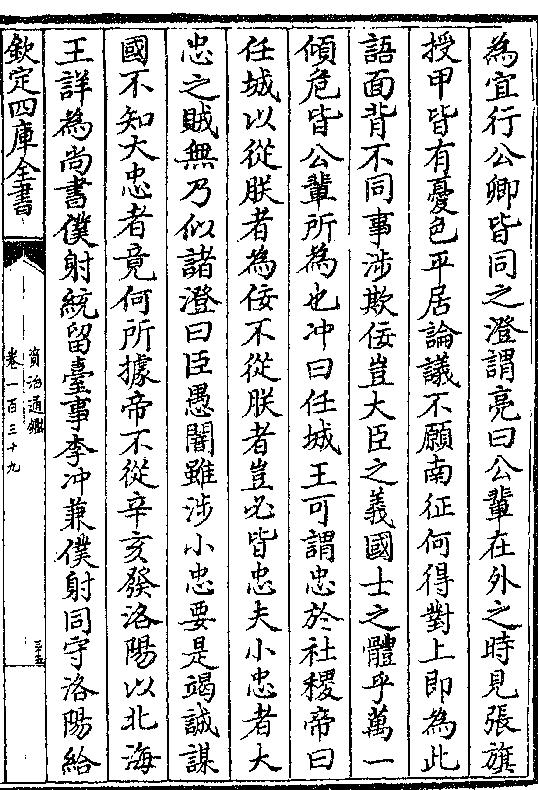 為宜行公卿皆同之澄謂亮曰公輩在外之時見張旗
授甲皆有憂色平居論議不願南征何得對上即為此
語面背不同事涉欺佞豈大臣之義國士之體乎萬一
傾危皆公輩所為也冲曰任城王可謂忠於社稷帝曰
任城以從朕者為佞不從朕者豈必皆忠夫小忠者大
忠之賊無乃似諸澄曰臣愚闇雖涉小忠要是竭誠謀
國不知大忠者竟何所據帝不從辛亥發洛陽以北海
王詳為尚書僕射統留臺事李冲兼僕射同守洛陽給
欽定四庫全書
資治通鑑
卷一百三十九
三十五